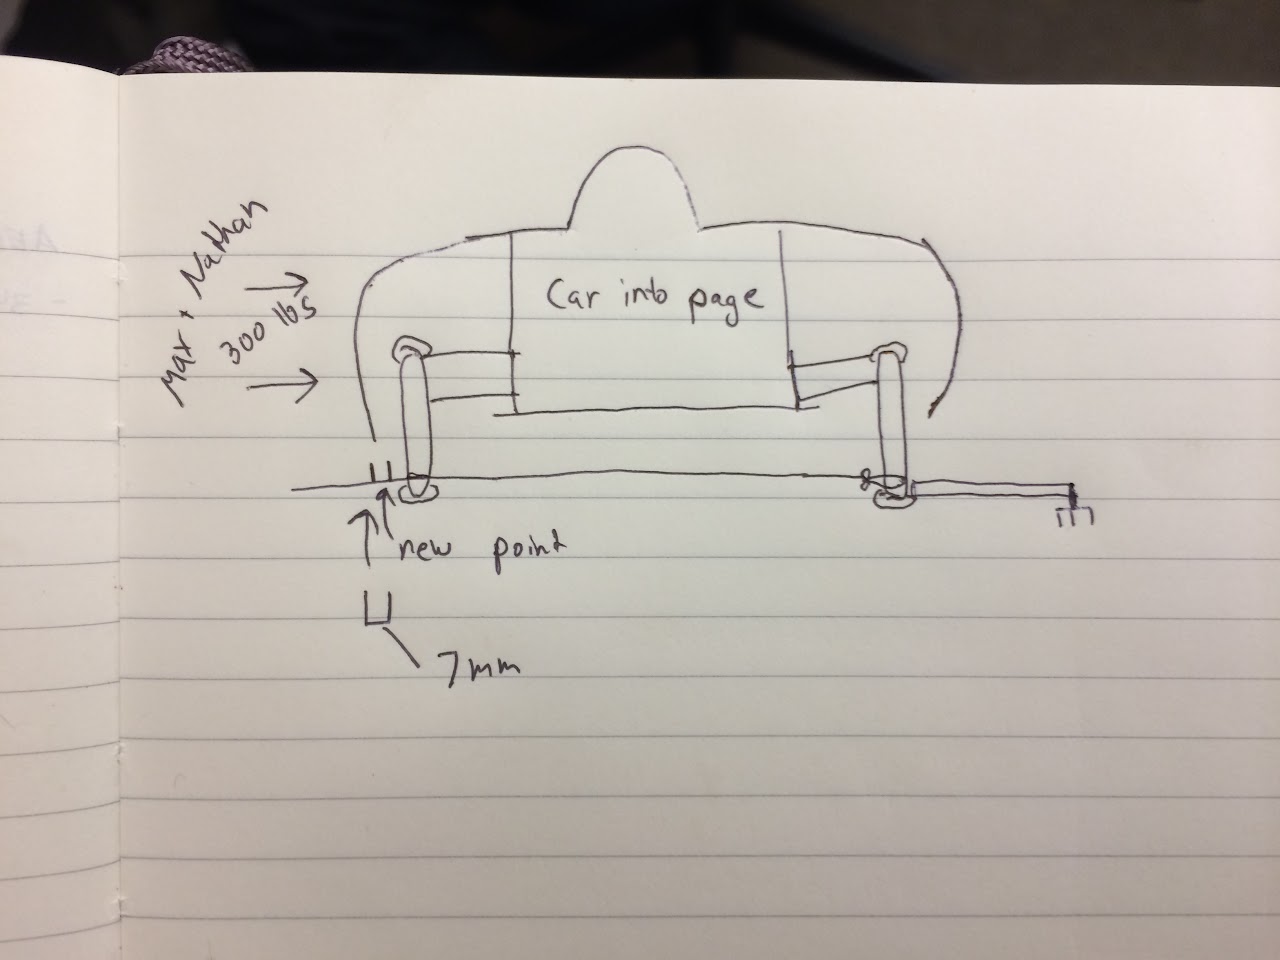 Max + Nathan
300 lbs
Car into page
new point
7mm